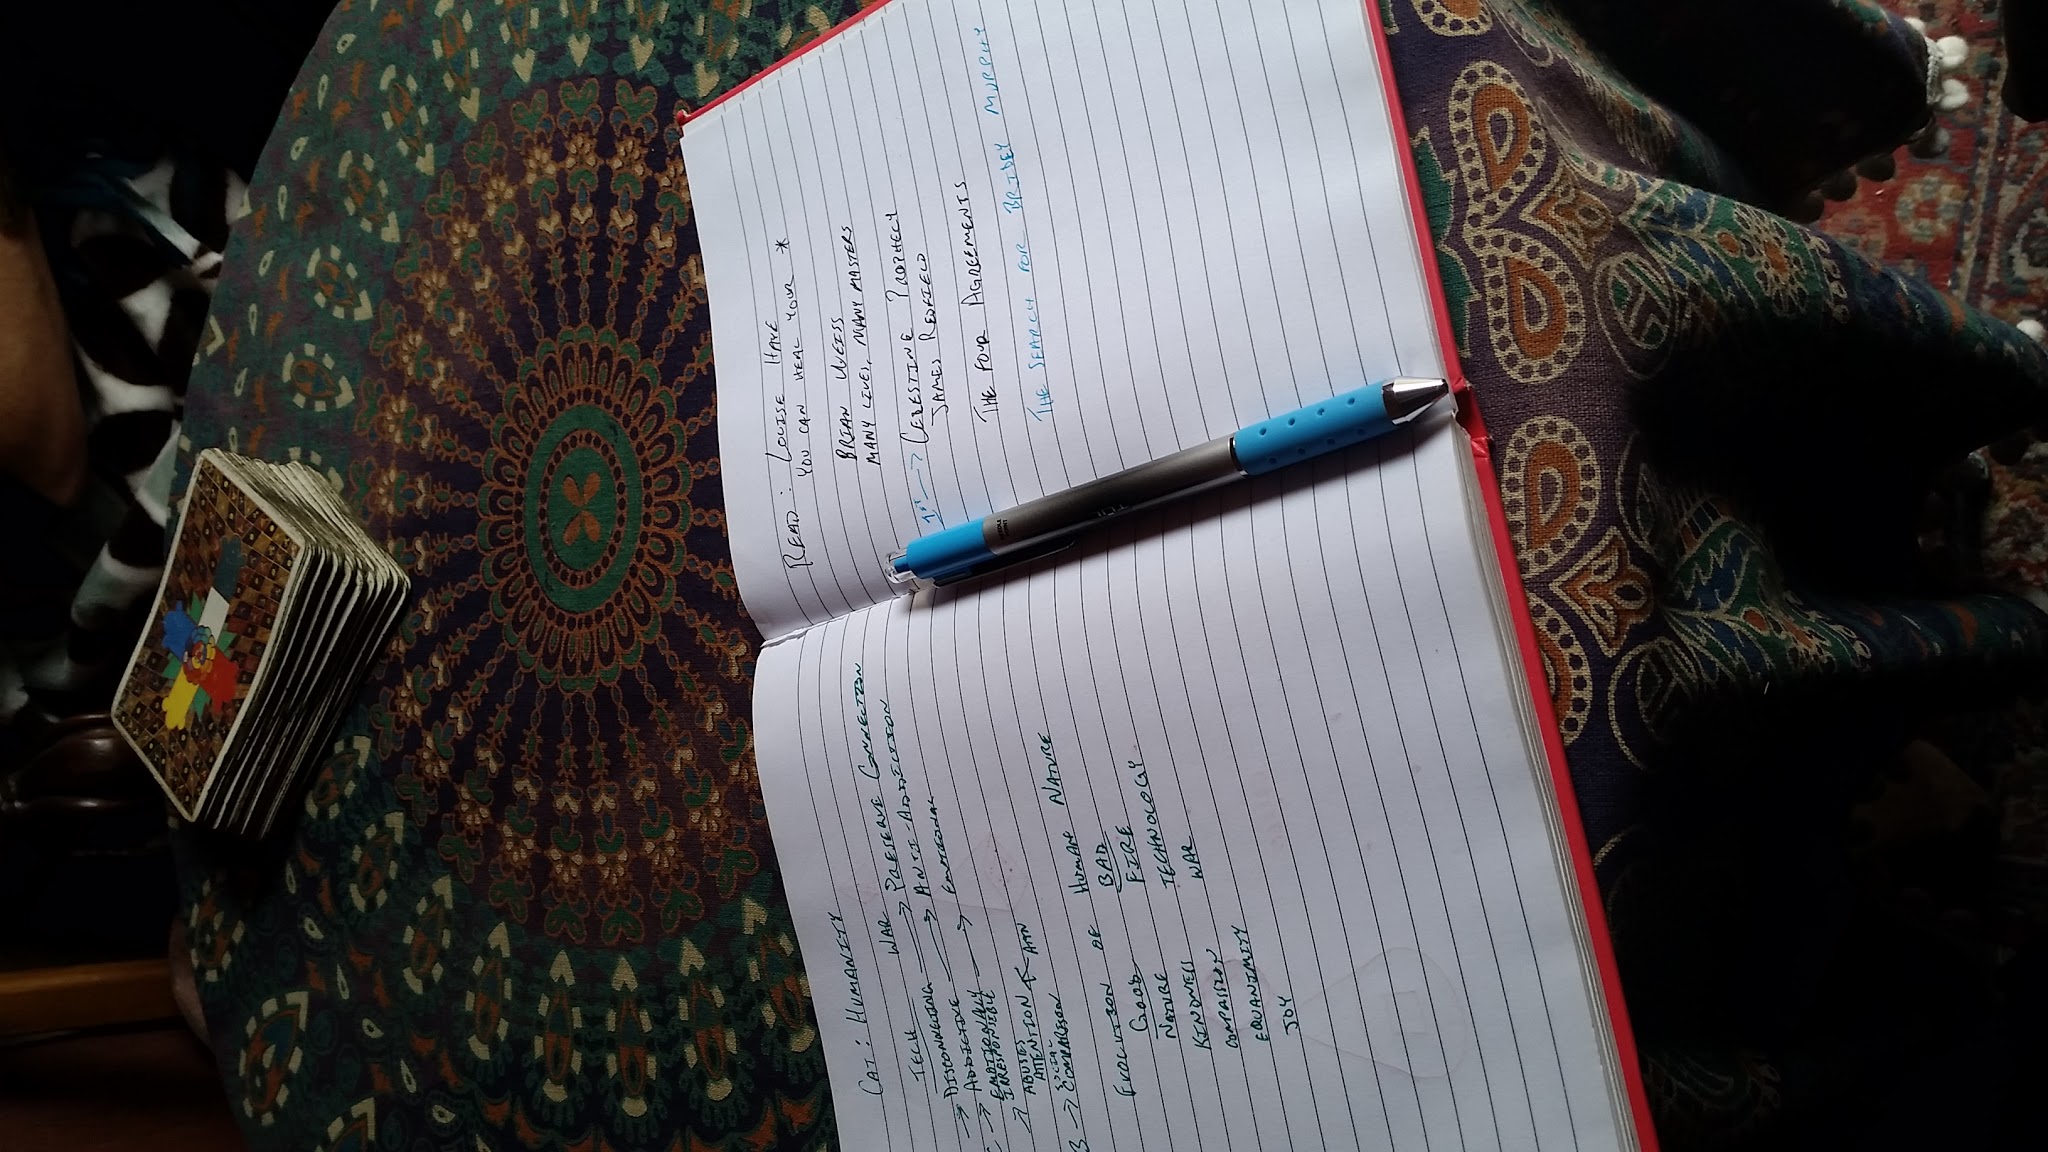 CAT: HUMANITY
TECH WAR
DISCONNECTING → PRESERVE CONNECTION
→ ADDICTIVE → ANTI-ADDICTION
→ EMOTIONALLY → EMOTIONAL
IRRESPONSIBLE
ABUSES
ATTENTION
SOCIAL
→ COMPARISON
EVOLUTION OF HUMAN NATURE
GOOD BAD
NATURE FIRE
KINDNESS TECHNOLOGY
COMPASSION WAR
EQUANIMITY
JOY
READ: LOUISE HAYE
YOU CAN HEAL YOUR *
BRIAN WEISS
MANY LIVES, MANY MASTERS
1ST → CELESTINE PROPHECY
JAMES REDFIELD
THE FOUR AGREEMENTS
THE SEARCH FOR BRIDEY MURPHY
NEEDLE
POINT